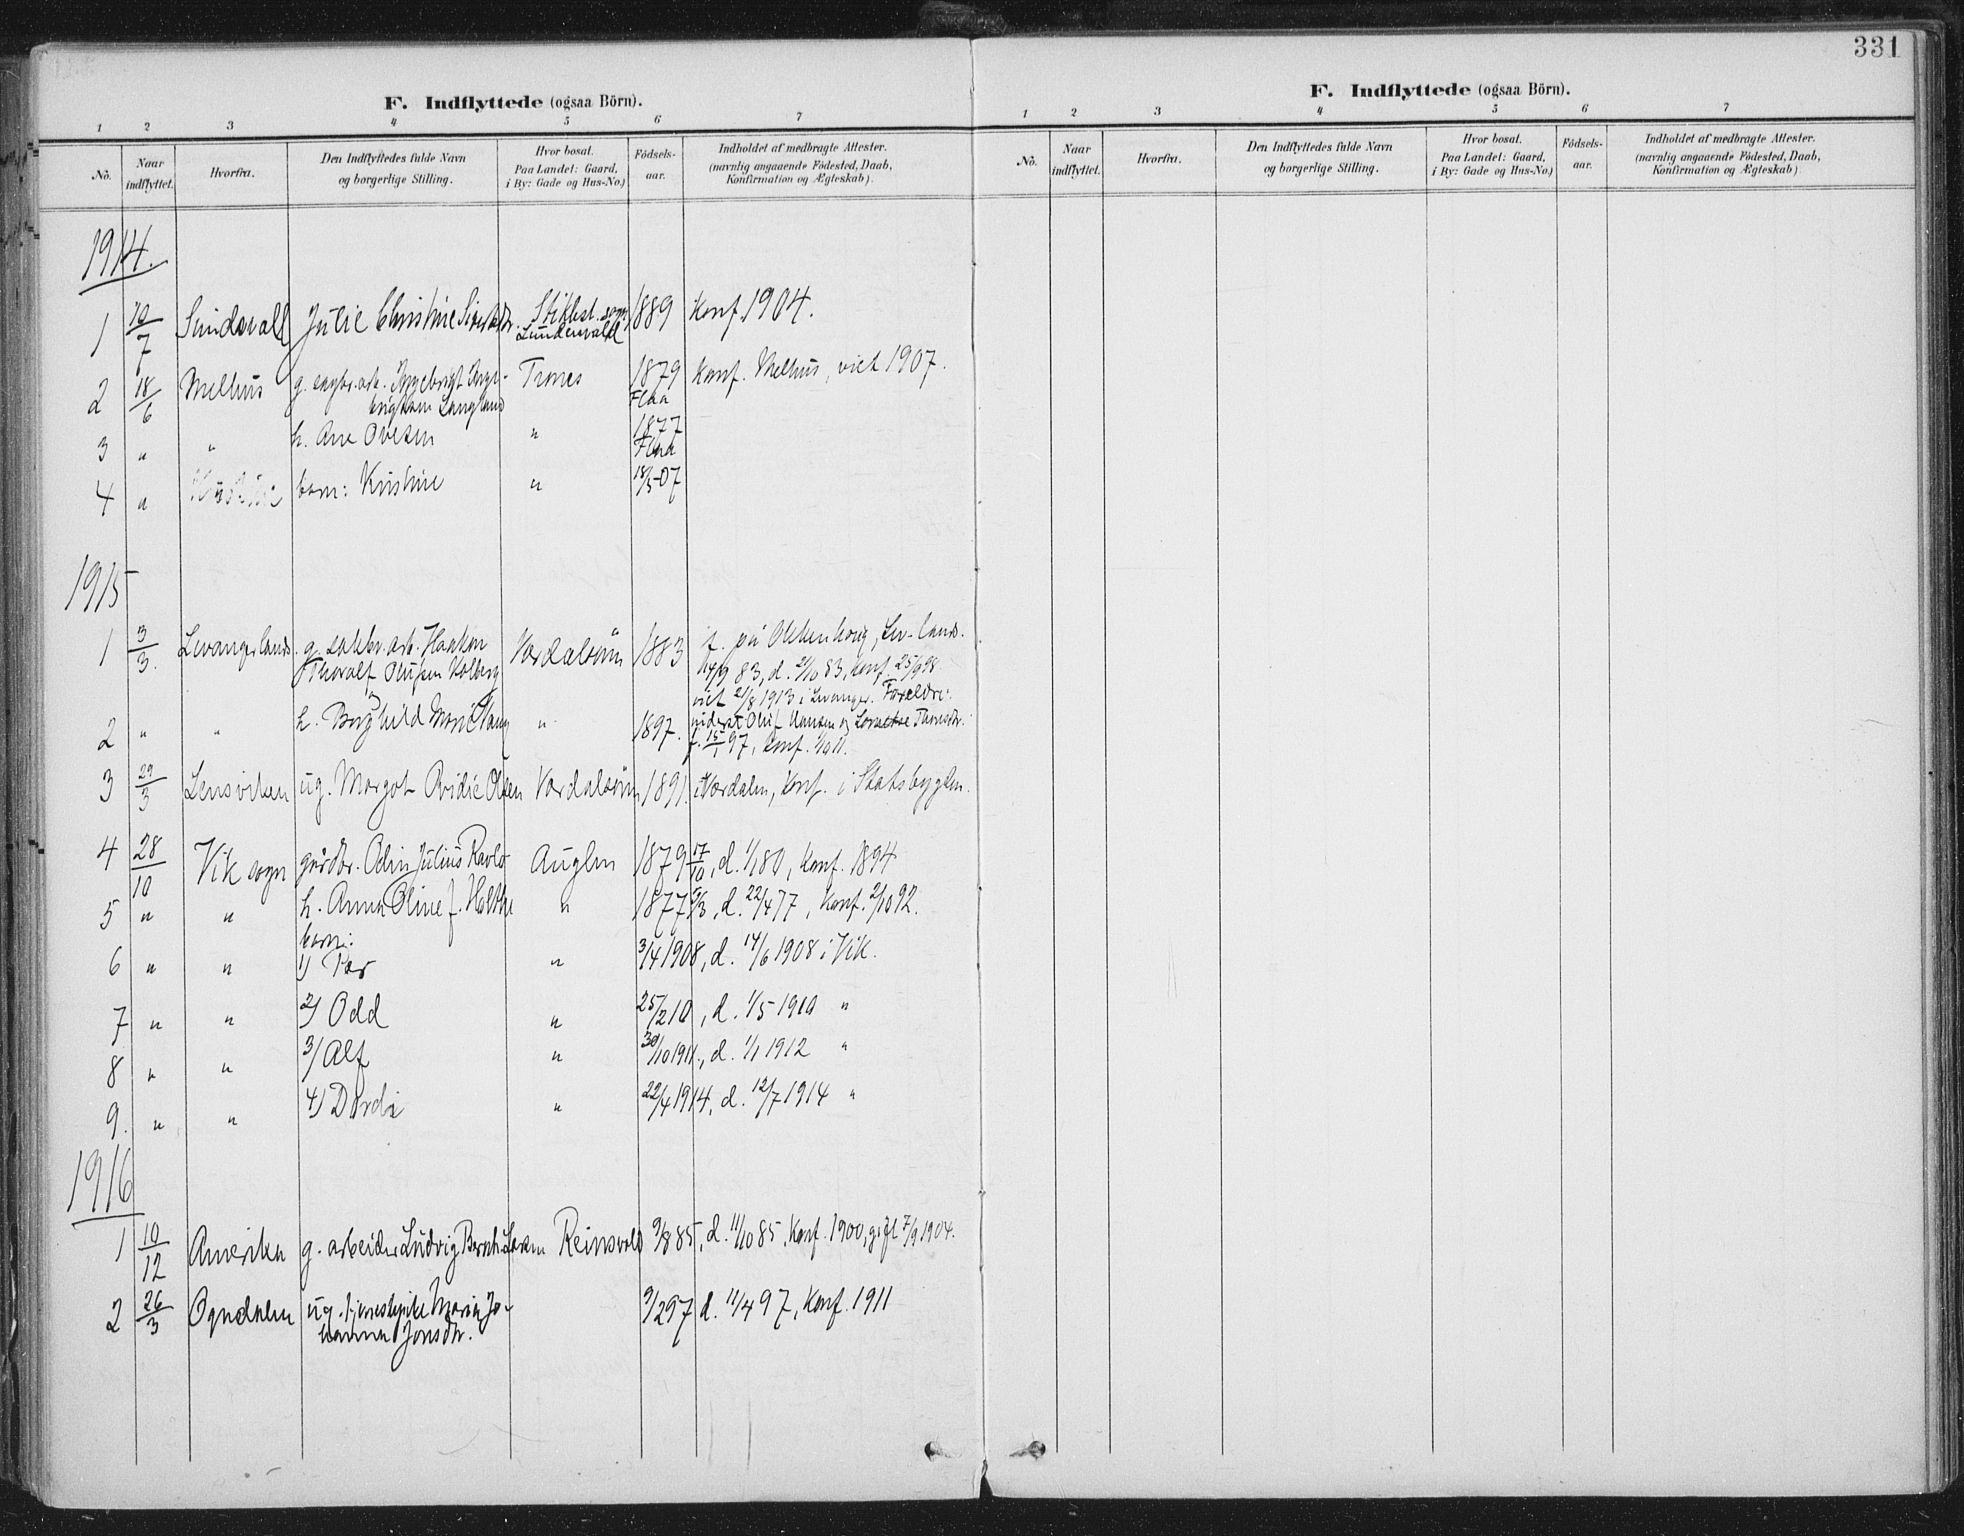 331
F. Indflyttede (ogsaa Börn).
1 2 3 4 5 6 7
No. Naar indflyttet. Hvorfra. Den Indflyttedes fulde Navn og borgerlige Stilling. Hvor bosat. Paa Landet: Gaard, i By: Gade og Hus-No.) Födsels-aar. Indholdet af medbragte Attester. (navnlig angaaende Födested, Daab, Konfirmation og Ægteskab).
1914.
1 10/7 Sundsvall Julie Christine Stiklest. sogn 1889 Konf. 1904.
2 18/6 Melhus g. Ingebrigt Inge- Trones 1879 Konf. Melhus, viet 1907.
brigtsen Langland Flaa
3 " " h. Ane Ovesen " 1877
Flaa
4 " Kristine barn: Kristine " 18/5 07
1915
1 3/3. Levanger lands. g. sakbr. arb. Haakon Værdalsören 1883 f. på Okkenhaug, Lev. lands.
Thoralf Olufsen Kolberg 14/9 83, d. 21/10 83, Konf. 25/9 98
viet 21/8 1913 i Levanger. Forældre:
2 " " h. Borghild Marie " 1897. Oluf Hansen og
f. 15/1 97, Konf. 1/10 11.
3 29/3 Lensviken ug. Margot Ovidie Olsen Værdalsören 1891. Værdalen, Konf. i Statsbygden.
4 28/10 Vik sogn gårdbr. Odin Julius Ravlo Auglen 1879 17/10, d. 1/1 80, Konf. 1894
5 " " h. Anna Oline f. Holthe " 1877 6/3, d. 22/4 77, Konf. 2/10 92.
barn:
6 " " 1) Per " 3/4 1908, d. 14/6 1908 i Vik.
7 " " 2) Odd " 25/2 10, d. 1/5 1910 "
8 " " 3) Alf " 30/10 1911., d. 1/1 1912 "
9. " " 4) Dordi " 22/4 1914, d. 12/7 1914 "
1916
1 10/12 Amerika g. arbeider Ludvig Bernh. Larsen Reinsvold 9/8 85, d. 11/10 85, Konf. 1900, gift 7/9 1904.
2 26/3 Ogndalen ug. tjenestepike Maria Jo- 9/2 97 d. 11/4 97, Konf. 1911
hanna Jonsdtr.
F. Indflyttede (ogsaa Börn).
1 2 3 4 5 6 7
No. Naar indflyttet. Hvorfra. Den Indflyttedes fulde Navn og borgerlige Stilling. Hvor bosat. Paa Landet: Gaard, i By: Gade og Hus-No.) Födsels-aar. Indholdet af medbragte Attester. (navnlig angaaende Födested, Daab, Konfirmation og Ægteskab)